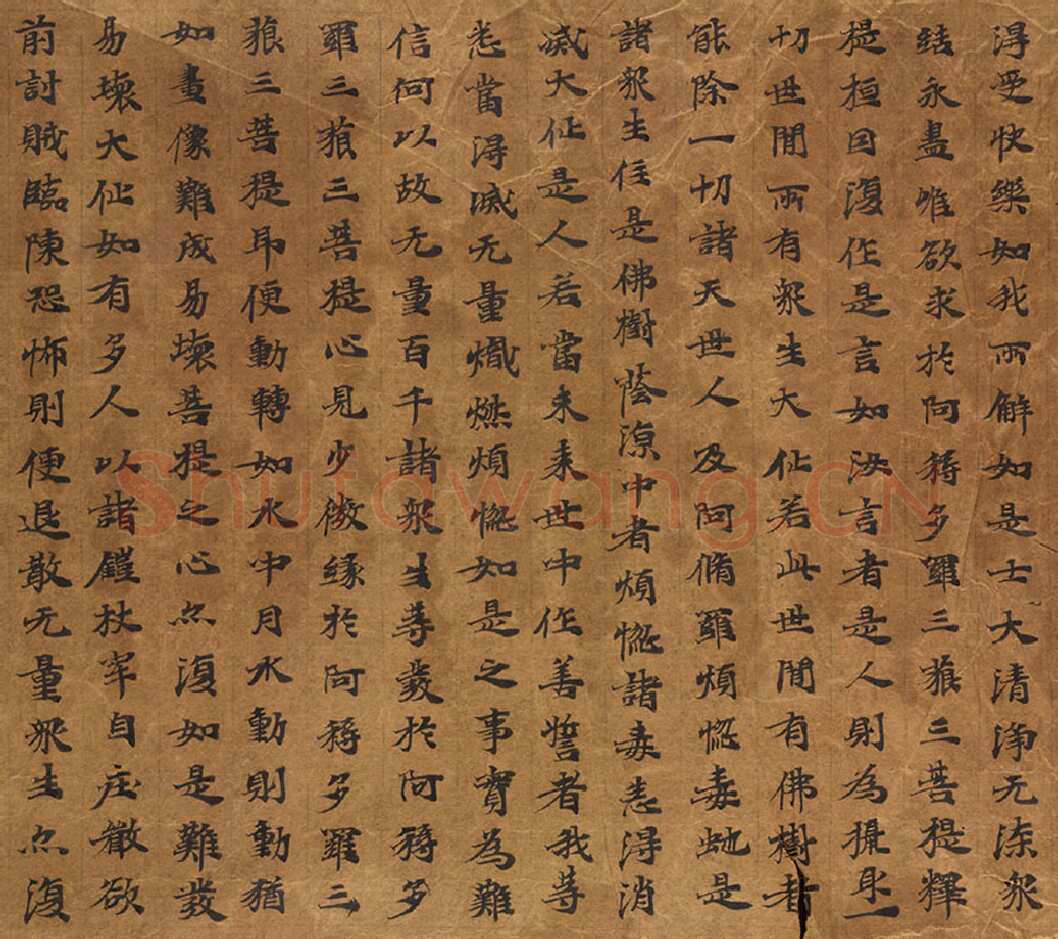 得受快樂如我所解如是士大清淨无染眾
結永盡唯欲求於阿耨多羅三藐三菩提釋
提桓因復作是言如汝言者是人則為攝取一
切世間所有眾生大仙若此世間有佛樹者
能除一切諸天世人及阿脩羅煩惱毒虵是
諸眾生住是佛樹蔭涼中者煩惱諸毒悉得消
滅大仙是人若當未來世中作善誓者我等
悉當得滅无量熾燃煩惱如是之事實為難
信何以故无量百千諸眾生等發於阿耨多
羅三藐三菩提心見少微緣於阿耨多羅三
藐三菩提即便動轉如水中月水動則動猶
如畫像難成易壞菩提之心亦復如是難發
易壞大仙如有多人以諸鎧杖牢自庄嚴欲
前討賊臨陳恐怖則便退散无量眾生亦復
Shufawang.CN